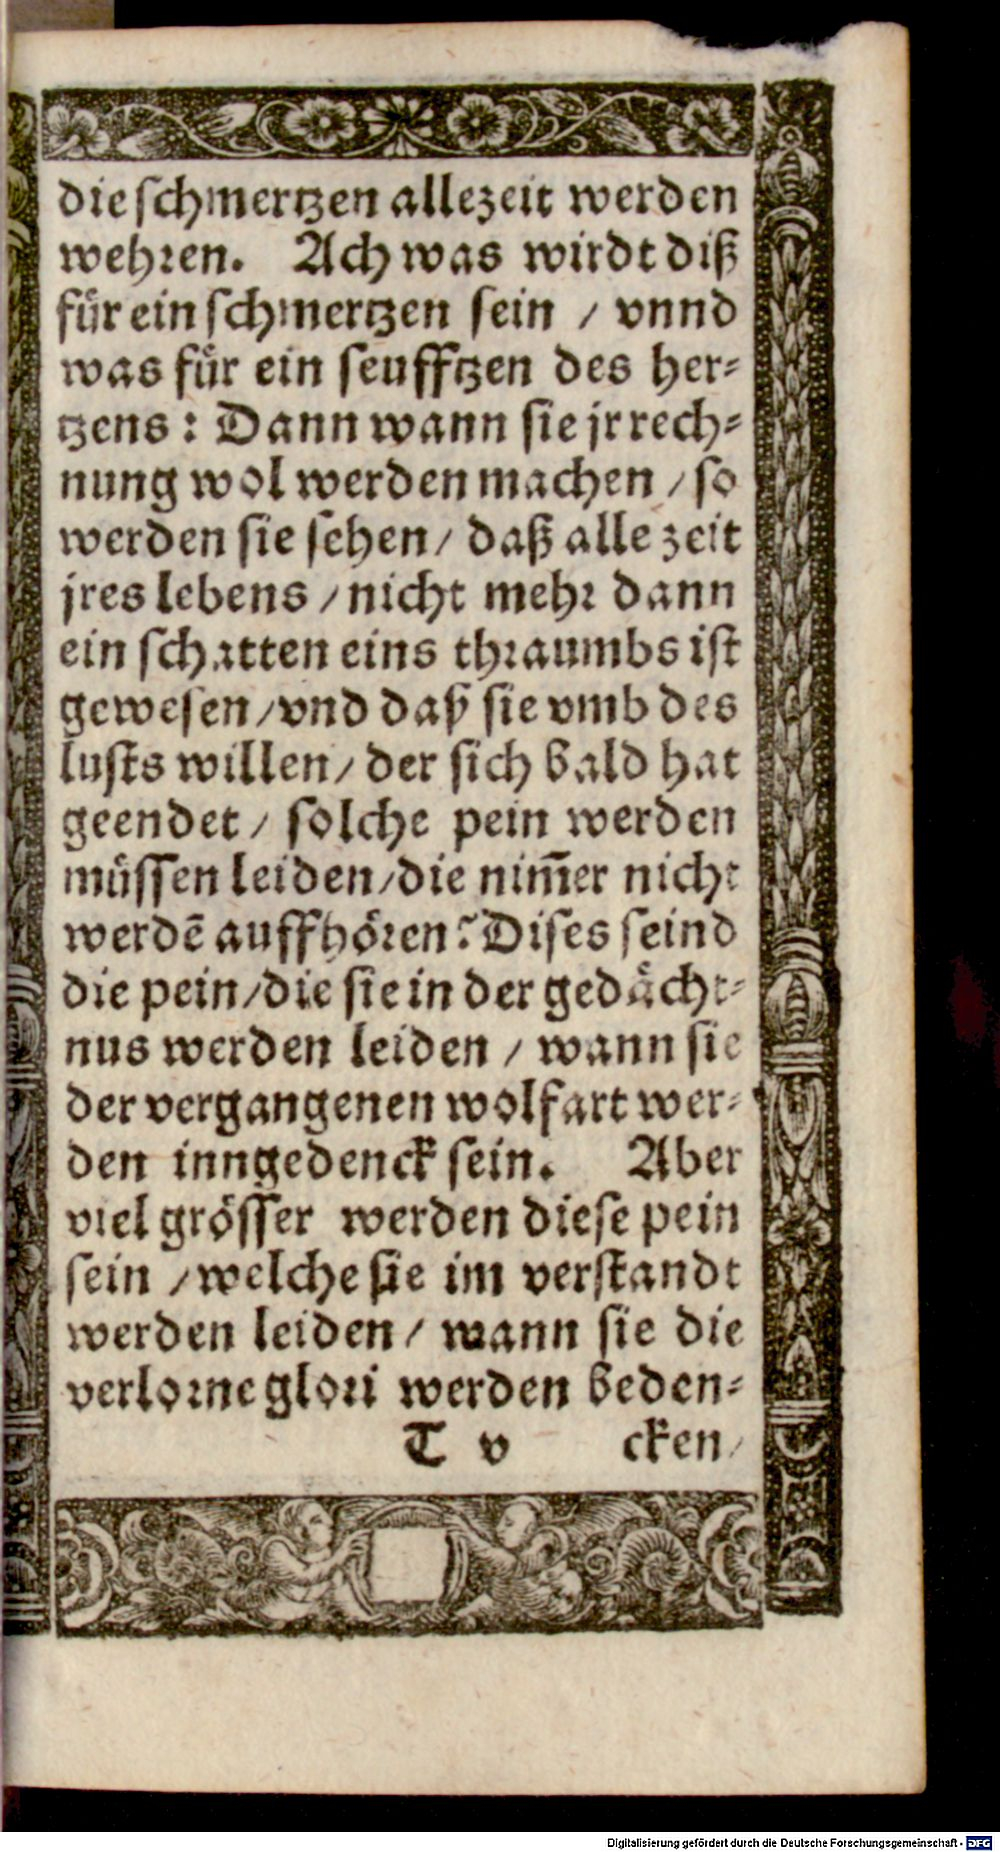 die schmertzen allezeit werden
wehren. Ach was wirdt diß
für ein schmertzen sein / vnnd
was für ein seufftzen des her-
tzens : Dann wann sie jr rech-
nung wol werden machen / so
werden sie sehen / daß alle zeit
jres lebens / nicht mehr dann
ein schatten eins thraumbs ist
gewesen / vnd daß sie vmb des
lusts willen / der sich bald hat
geendet / solche pein werden
müssen leiden / die nim̄er nicht
werdē auffhören? Dises seind
die pein / die sie in der gedächt-
nus werden leiden / wann sie
der vergangenen wolfart wer-
den inngedenck sein. Aber
viel grösser werden diese pein
sein / welche sie im verstandt
werden leiden / wann sie die
verlorne glori werden beden-
T v cken /
Digitalisierung gefördert durch die Deutsche Forschungsgemeinschaft - DFG